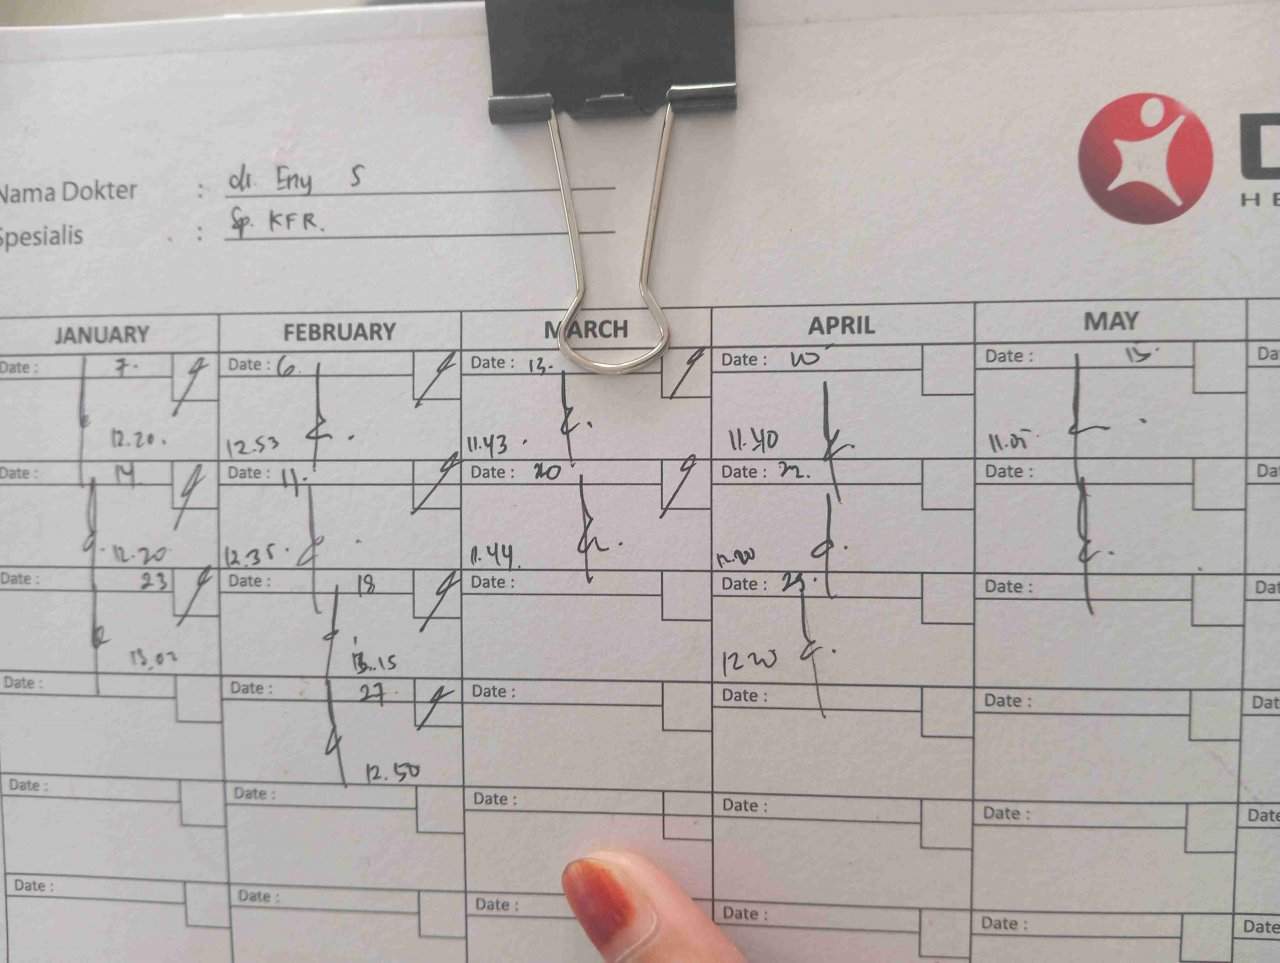 Nama Dokter : dr. Eny S
Spesialis : Sp. KFR.
HE
JANUARY FEBRUARY MARCH APRIL MAY
Date : 7. Date : 6. Date : 13. Date : 10 Date : 15. Dat
12.20. 12.53 11.43 . 11.40 11.05
Date : 14 Date : 11. Date : 20 Date : 22. Date : Dat
12.20 12.35. 11.44.
Date : 23 Date : 18 Date : Date : Date : Dat
13.02 13.15 12 20
Date : Date : 27 Date : Date : Date : Dat
12.50
Date : Date : Date : Date : Date : Date
Date : Date : Date : Date : Date : Date